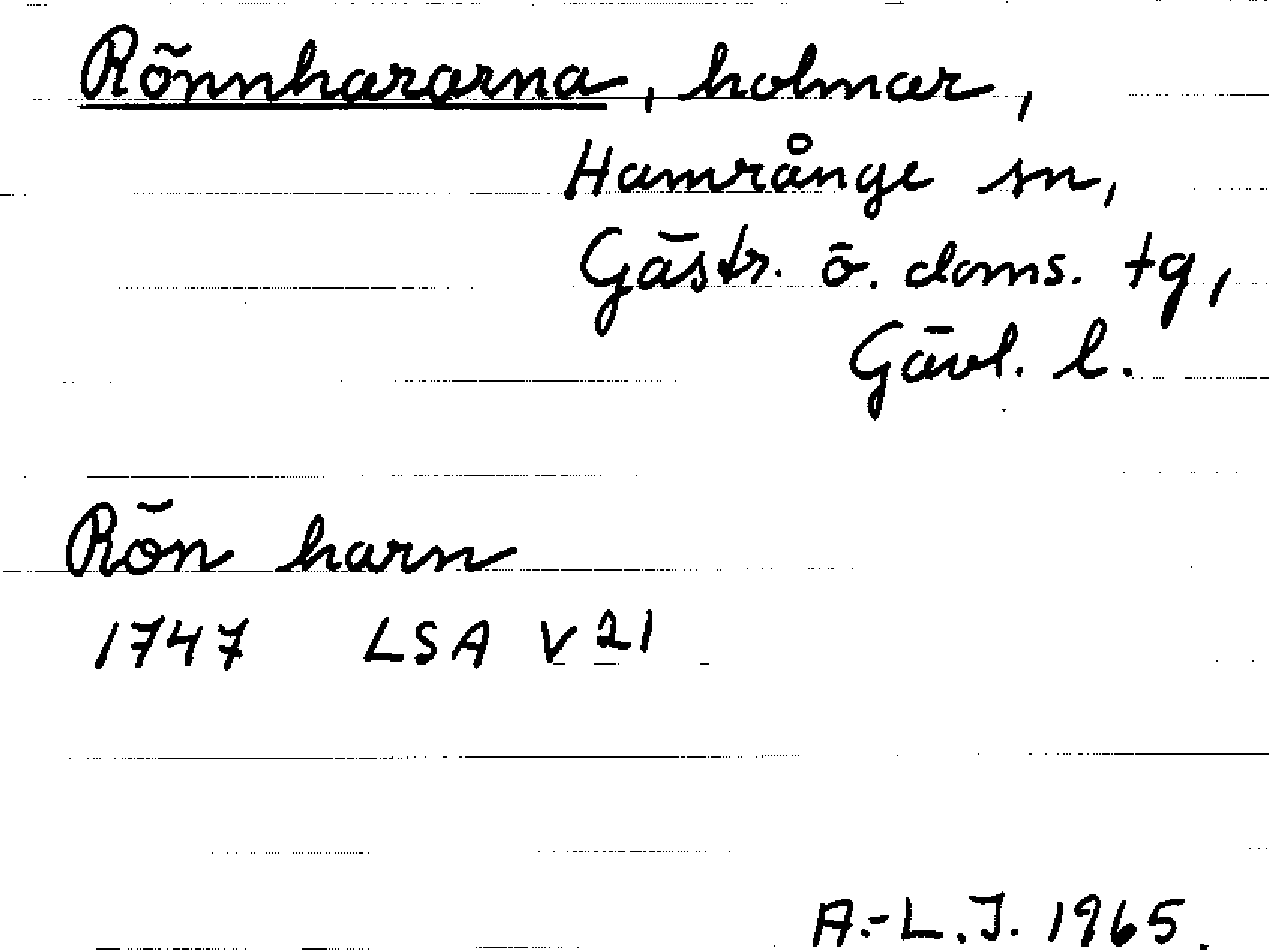 Rönnhararna, holmar,
Hamrånge sn,
Gästr. ö. doms. tg,
Gävl. l.
Rön harn
1747 LSA V 21
A.-L.J. 1965.